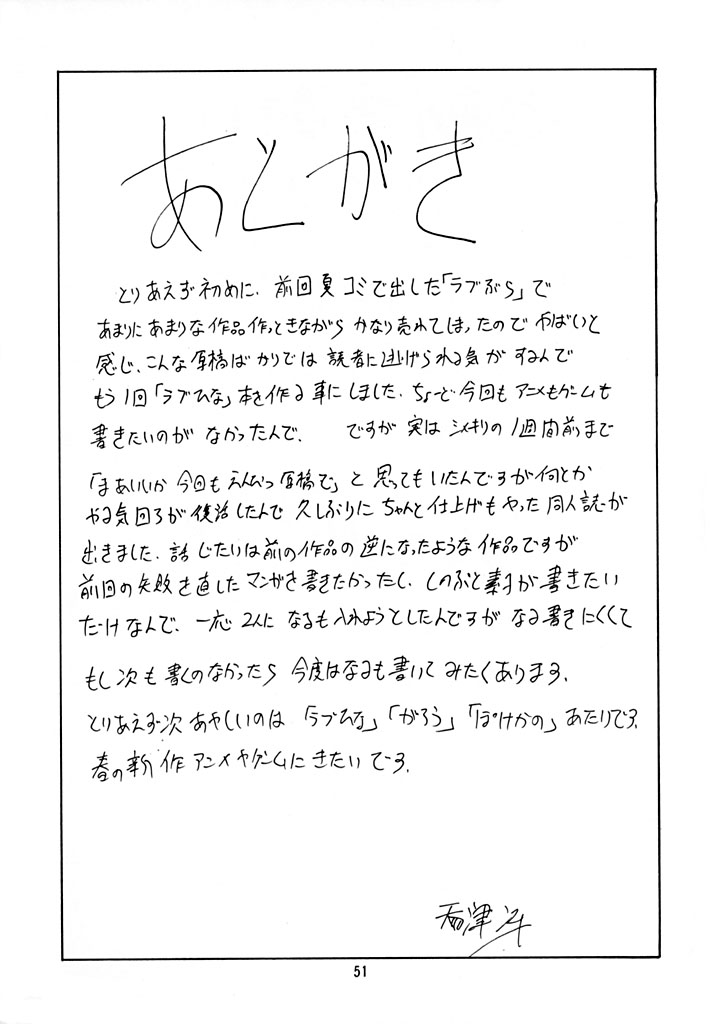 あとがき
とりあえず初めに、前回夏コミで出した「ラブぶら」で
あまりにあまりな作品作っときながらかなり売れてしまったのでやばいと
感じ、こんな原稿ばかりでは読者に逃げられる気がするんで
もう1回「ラブひな」本を作る事にしました、ちょーど今回もアニメもゲームも
書きたいのがなかったんで、 ですが実はシメキリの1週間前まで
「まあいいか今回もえんぴつ原稿で」と思ってもいたんですが何とか
やる気回ろが復活したんで久しぶりにちゃんと仕上げもやった同人誌が
出きました、話じたいは前の作品の逆になったような作品ですが
前回の失敗を直したマンガを書きたかったし、しのぶと素子が書きたい
だけなんで、一応2人になるも入れようとしたんですがなる書きにくくて
もし次も書くのなかったら今度はなるも書いてみたくあります、
とりあえず次あやしいのは「ラブひな」「がろう」「ぽけかの」あたりです、
春の新作アニメやゲームにきたいです、
51